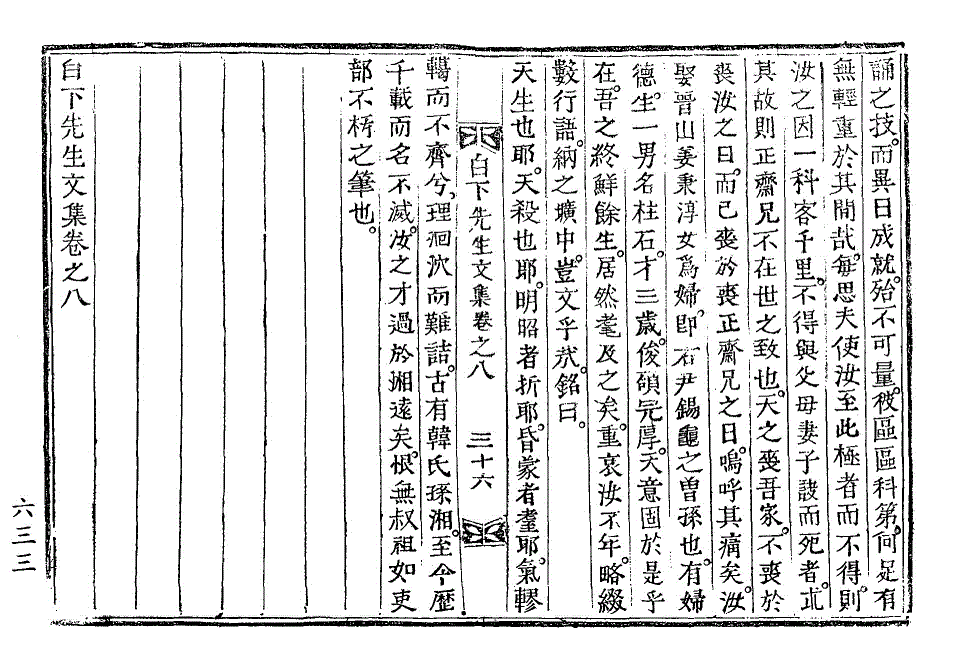 誦之技。而異日成就。殆不可量。彼區區科第。何足有
無輕重於其間哉。每思夫使汝至此極者而不得。則
汝之因一科客千里。不得與父母妻子訣而死者。亦
其故則正齋兄不在世之致也。天之喪吾家。不喪於
喪汝之日。而已喪於喪正齋兄之日。嗚呼其痛矣。汝
娶晉山姜秉淳女爲婦。卽右尹錫龜之曾孫也。有婦
德。生一男名柱石。才三歲。俊碩完厚。天意固於是乎
在。吾之終鮮餘生。居然耄及之矣。重哀汝不年。略綴
數行語。納之壙中。豈文乎哉。銘曰。
天生也耶。天殺也耶。明昭者折耶。昏蒙者耋耶。氣轇
白下先生文集卷之八 三十六
轕而不齊兮。理洄沕而難詰。古有韓氏孫湘。至今歷
千載而名不滅。汝之才過於湘遠矣。恨無叔祖如吏
部不朽之筆也。
白下先生文集卷之八
六三三